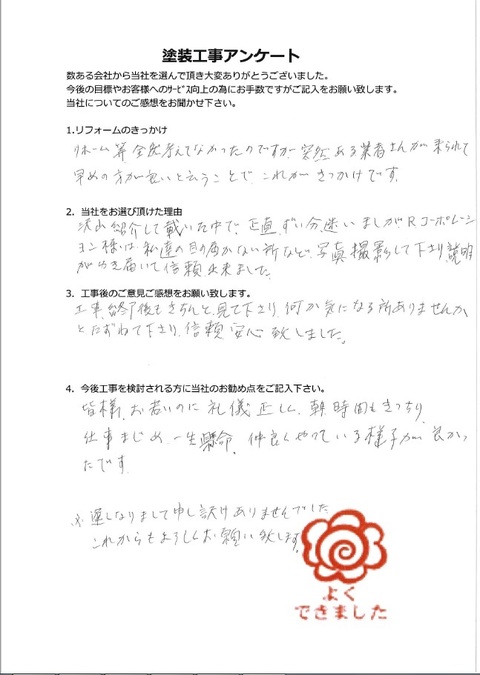 塗装工事アンケート
数ある会社から当社を選んで頂き大変ありがとうございました。
今後の目標やお客様へのｻｰﾋﾞｽ向上の為にお手数ですがご記入をお願い致します。
当社についてのご感想をお聞かせ下さい。
1.リフォームのきっかけ
リホーム等全然考えてなかったのですが突然ある業者さんが来られて
早めの方が良いと云うことで、これがきっかけです。
2．当社をお選び頂けた理由
沢山紹介して戴いた中で、正直ずい分迷いましたがRコーポレーシ
ョン様は、私達の目の届かない所など、写真撮影して下さり、説明
が行き届いて信頼出来ました。
3．工事後のご意見ご感想をお願い致します。
工事終了後もきちんと見て下さり、何か気になる所ありませんか
とたずねて下さり、信頼安心致しました。
4．今後工事を検討される方に当社のお勧め点をご記入下さい。
皆様、お若いのに礼儀正しく、朝時間もきっちり
仕事まじめ、一生懸命、仲良くやっている様子が良かっ
たです。
※遅くなりまして申し訳けありませんでした
これからもよろしくお願い致します。
よく
できました